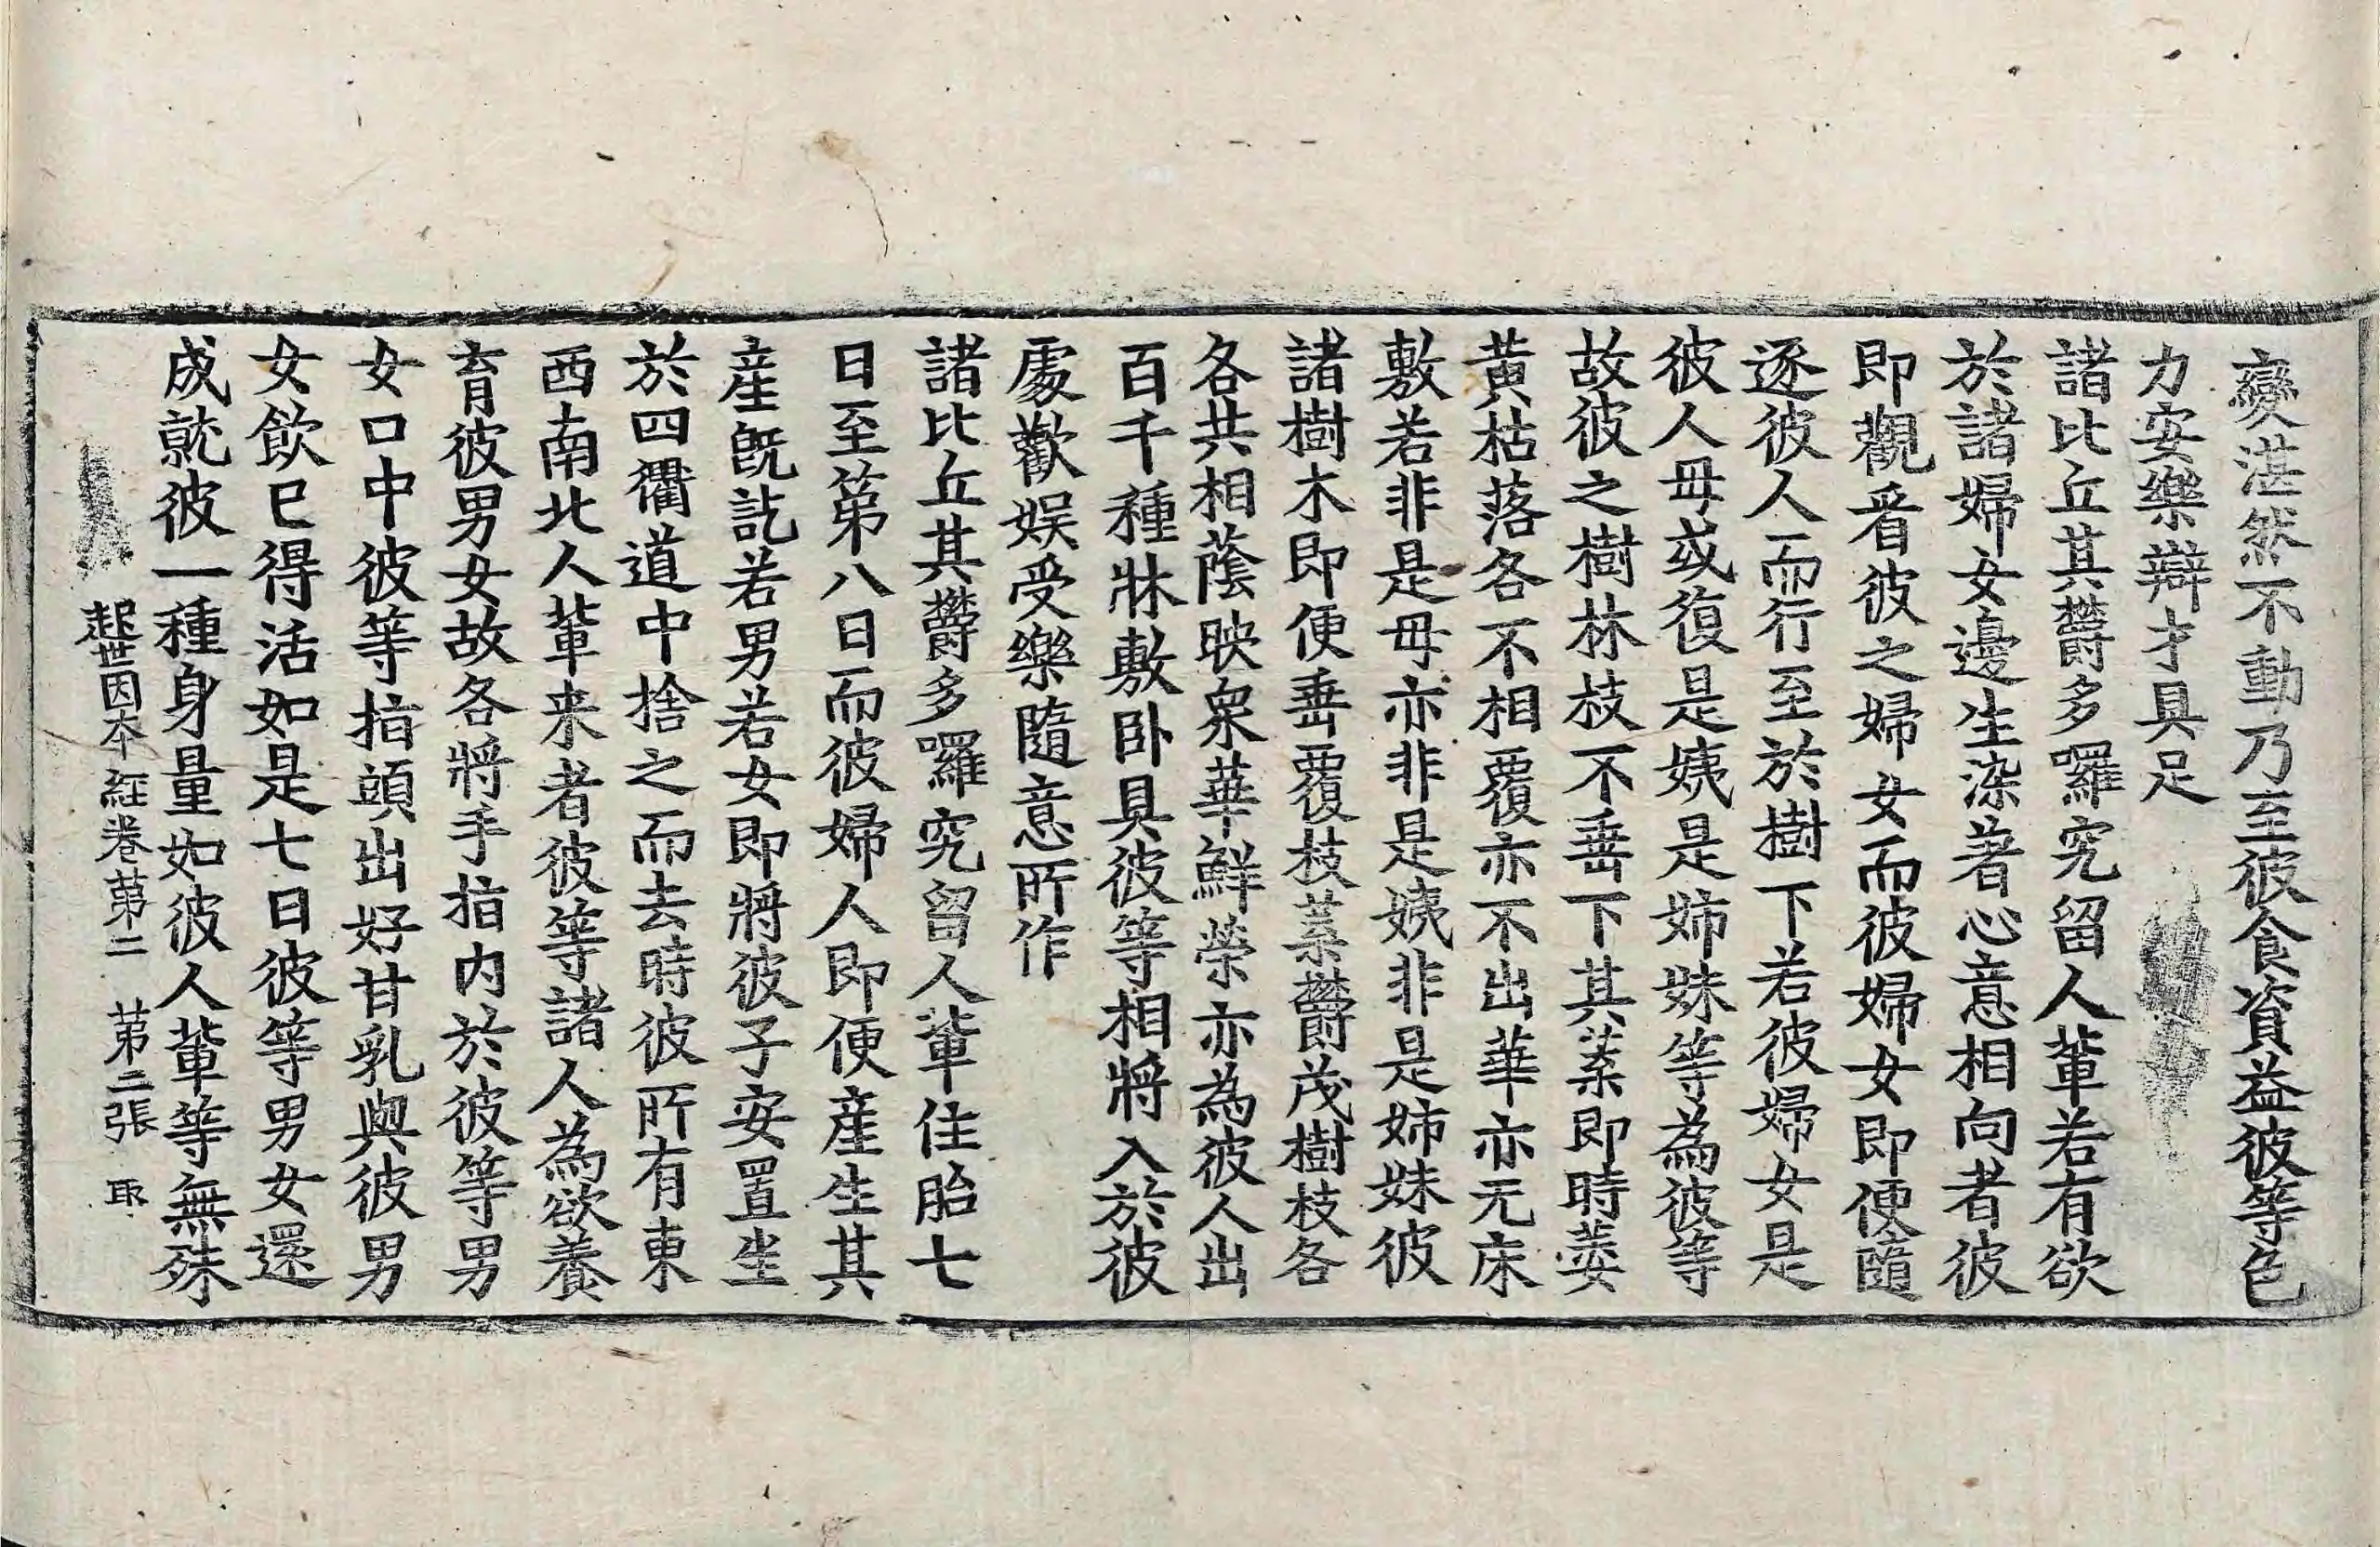 變湛然不動乃至彼食資益彼等色
力安樂辯才具足
諸比丘其欝多囉究留人軰若有欲
於諸婦女邊生染著心意相向者彼
即觀看彼之婦女而彼婦女即便隨
逐彼人而行至於樹下若彼婦女是
彼人毋或復是姨是姉妹等為彼等
故彼之樹林枝不垂下其葉即時萎
黃枯落各不相覆亦不出華亦无床
敷若非是毋亦非是姨非是姉妹彼
諸樹木即便垂覆枝葉欝茂樹枝各
各共相蔭映衆華鮮榮亦為彼人出
百千種牀敷卧具彼等相將入於彼
處歡娱受樂隨意所作
諸比丘其欝多囉究留人軰住胎七
日至第八日而彼婦人即便産生其
産旣訖若男若女即將彼子安置坐
於四衢道中捨之而去時彼所有東
西南北人軰来者彼等諸人為欲養
育彼男女故各將手指内於彼等男
女口中彼等指頭出好甘乳與彼男
女飲已得活如是七日彼等男女還
成就彼一種身量如彼人軰等無殊
起世因本經卷第二　第二張　取